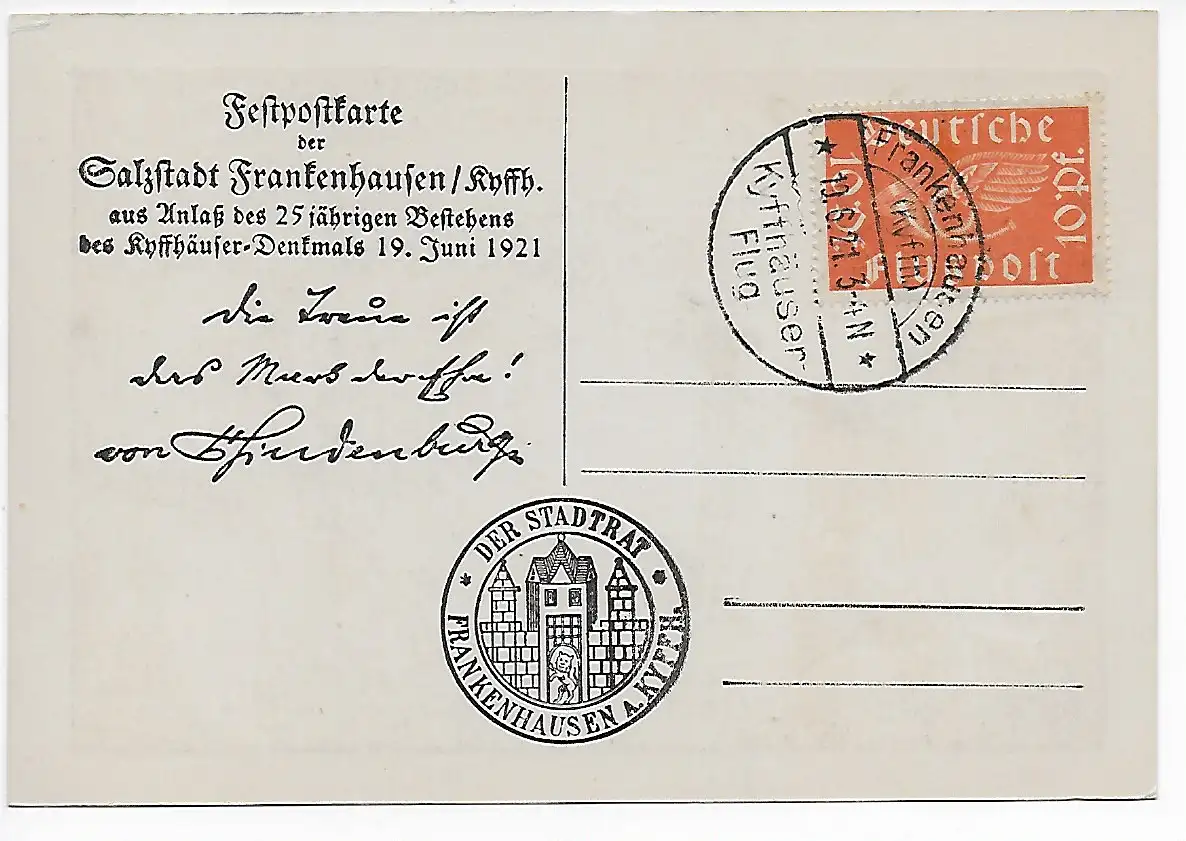 Festpostkarte
der
Salzstadt Frankenhausen/Kyffh.
aus Anlaß des 25 jährigen Bestehens
des Kyffhäuser-Denkmals 19. Juni 1921
Die Treue ist
das Mark der Ehre!
von Hindenburg.
Deutsche
Flugpost
10 Pf.
10 Pf.
Frankenhausen
(Kyffh.)
19.6.21. 3-4 N
Kyffhäuser-
Flug
DER STADTRAT
FRANKENHAUSEN A. KYFFH.